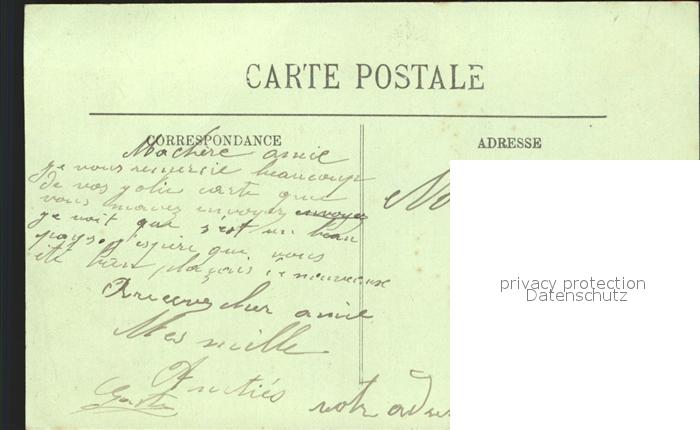 CARTE POSTALE
CORRESPONDANCE
ADRESSE
Ma chère amie
je vous remercie beaucoup
de vos jolie carte que
vous mavez envoyez envoyez
je voit que s'est un beau
pays. j'espère que vous
ete bien
Recevez cher amie
Mes mille
Amitiés
votre
privacy protection
Datenschutz